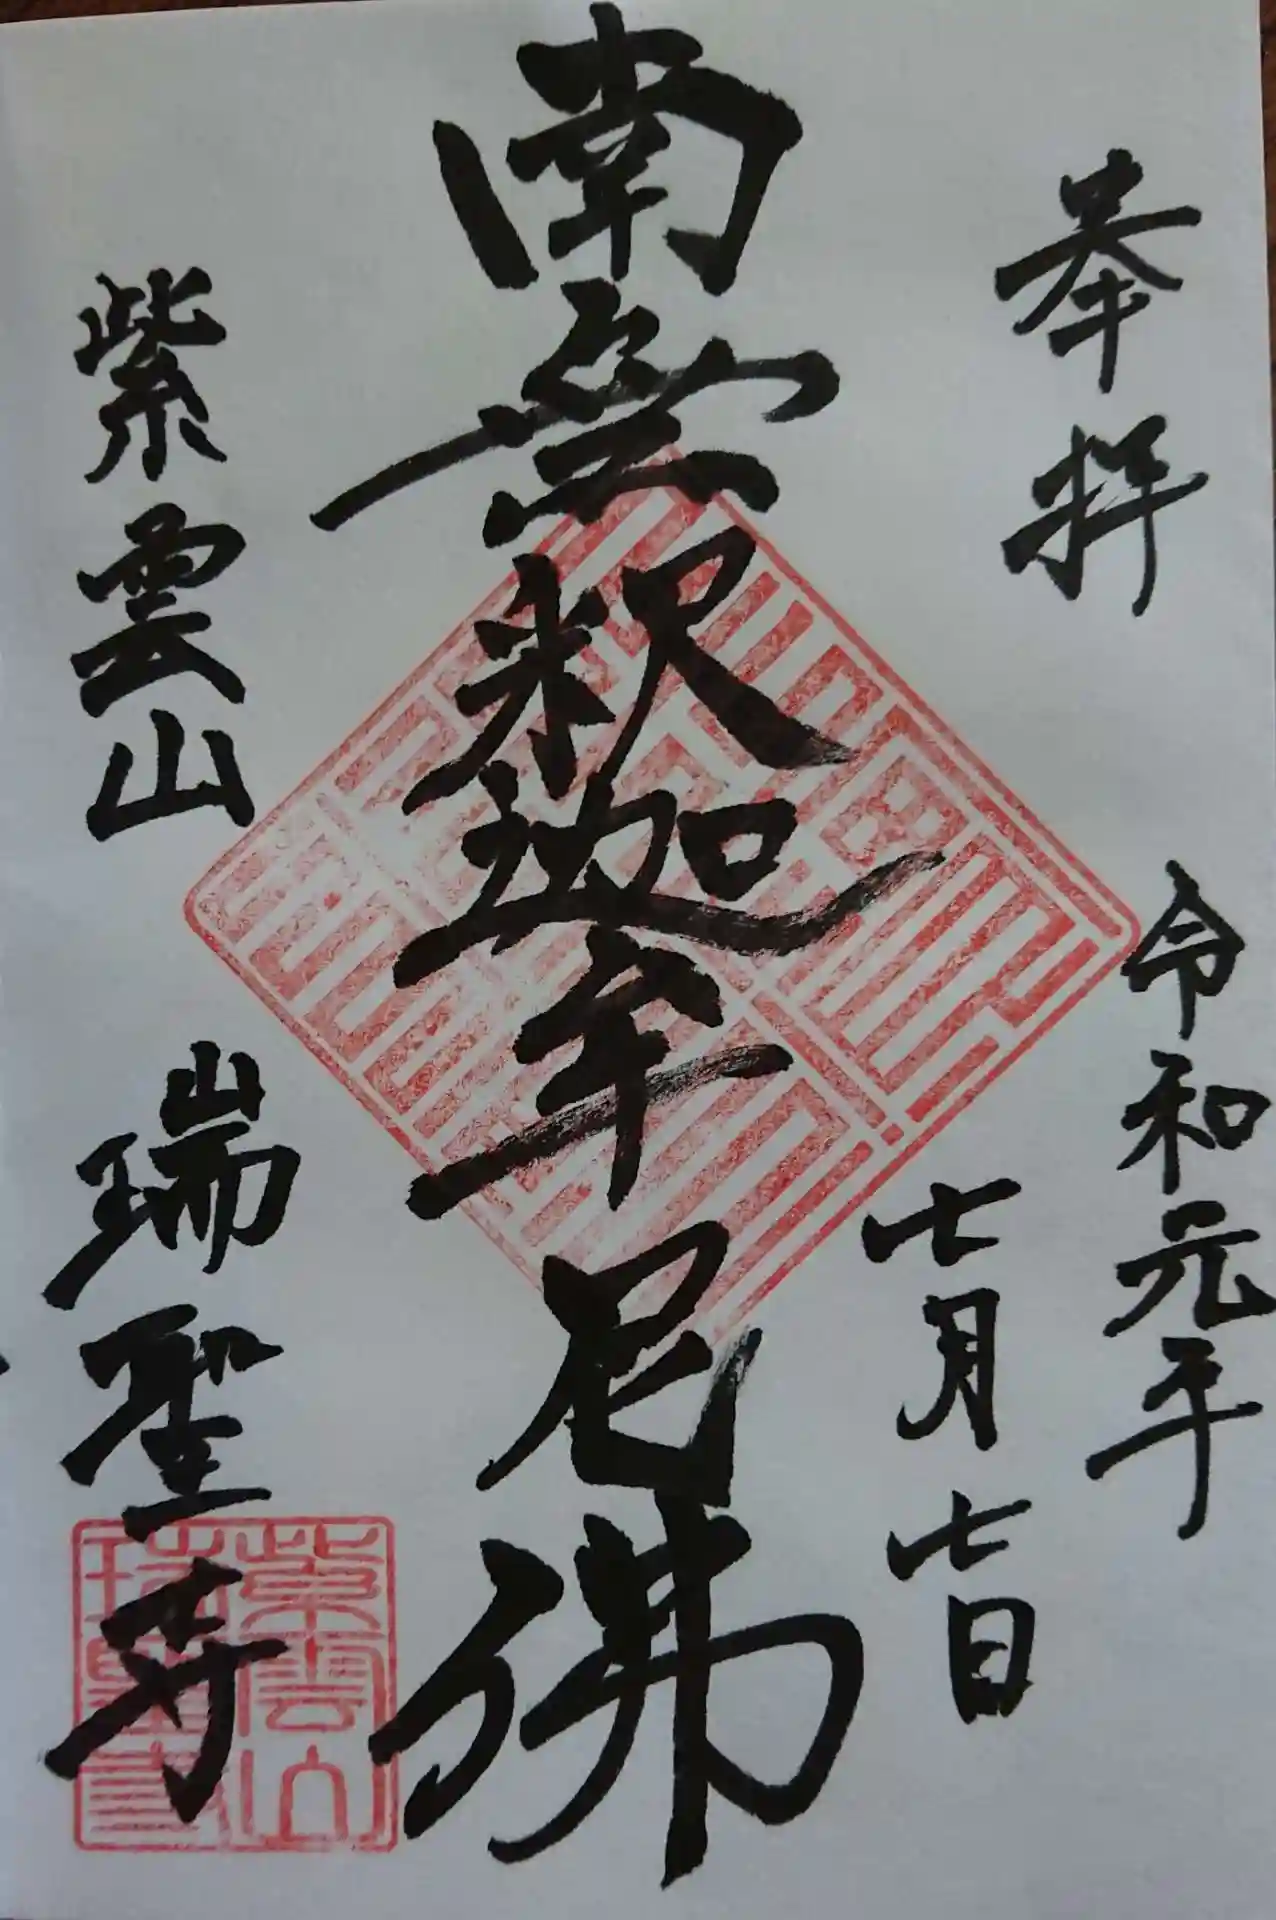 奉拝
令和元年
七月七日
南無釈迦牟尼佛
紫雲山
瑞聖寺
紫雲山
瑞聖寺